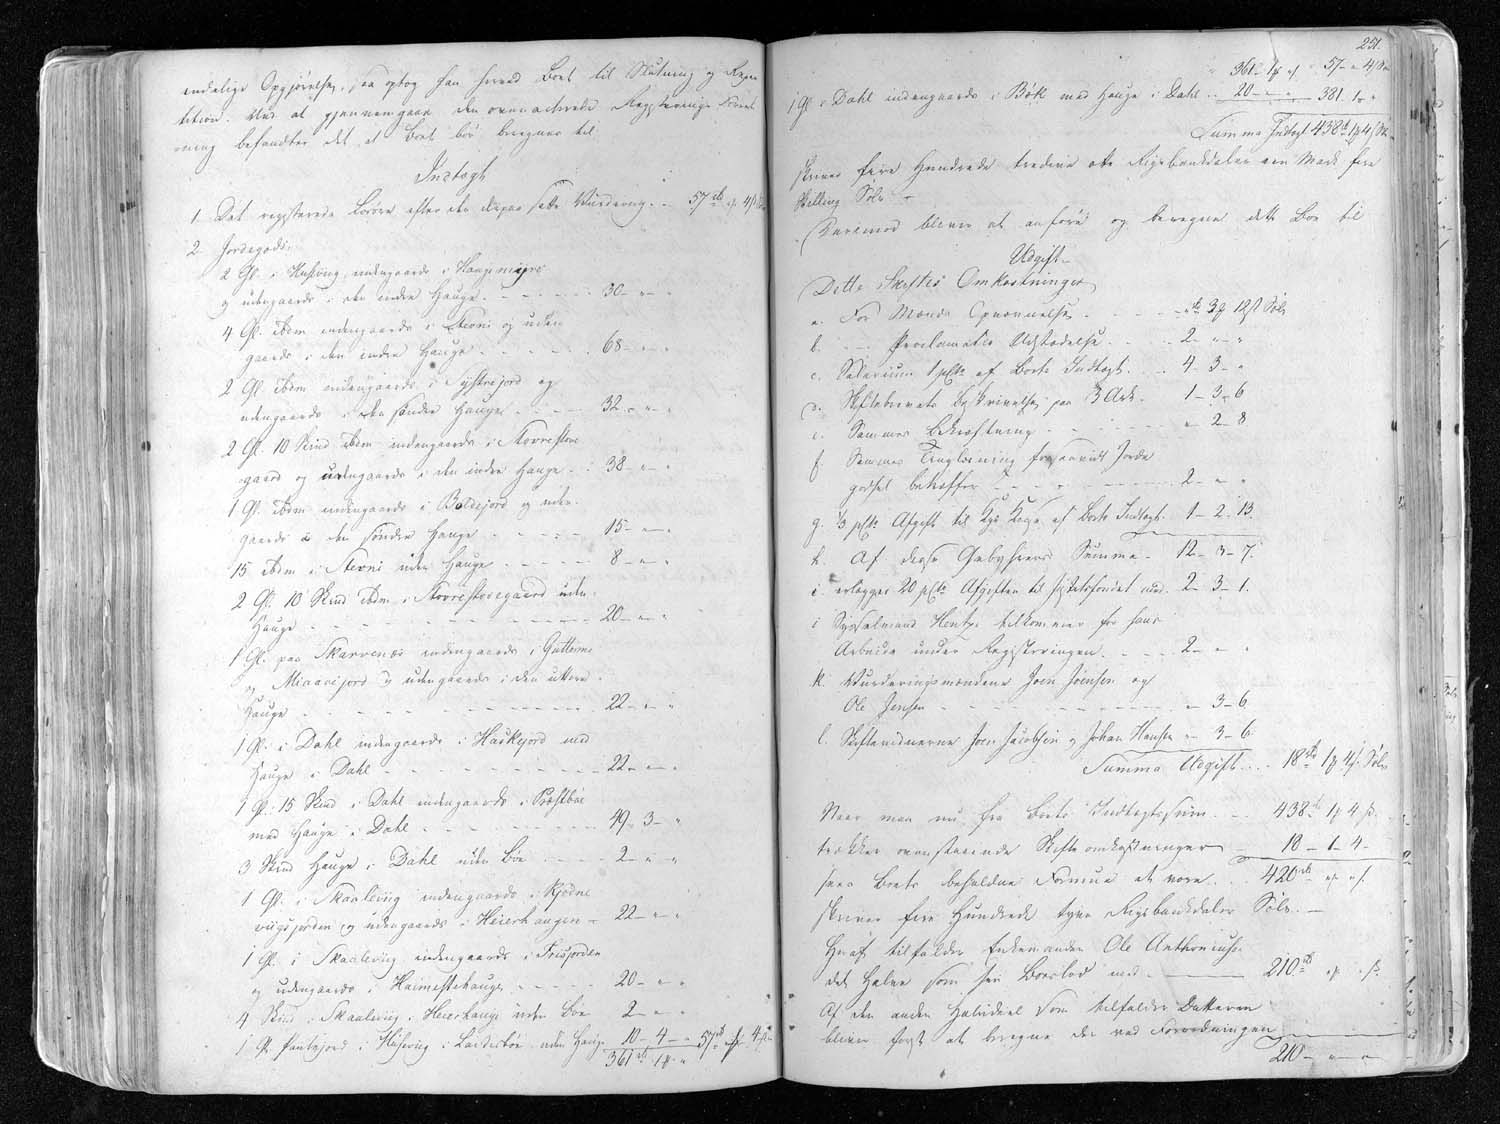 endelige Opgjørelse, saa optog han herved Boet til Slutning og Repar
tition. Ved at gjennemgaae den ovenanførte Registrerings Forret
ning befandtes det at Boet bør beregnes til
Indtægt
1. Det registrerede Løsøre efter den derpaa satte Vurdering .. 57 rd " 4 ß
2. Jordegods:
2 Gl. i Husevig indengaards i Haugemyre
og udengaards i den indre Hauge. 30 " "
4 Gl. ibdm indengaards i Stevni og uden
gaards i den indre Hauge 68 " "
2 Gl. ibdm indengaards i Systrejord og
udengaards i den søndre Hauge 32 " "
2 Gl. 10 Skind ibdm indengaards i Storrestove
gaard og udengaards i den indre Hauge 38 " "
1 Gl. ibdm indengaards i Boldejord og uden
gaards i den søndre Hauge 15 " "
15 ibdm i Stevni uden Hauge 8 " "
2 Gl. 10 Skind ibdm i Storrestovegaard uden
Hauge 20 " "
1 Gl. paa Skarvenæs indengaards i
og udengaards i den
Hauge 22 " "
1 Gl. i Dahl indengaards i Haikejord med
Hauge i Dahl 22 " "
1 Gl. 15 Skind i Dahl indengaards i Præstbøe
med Hauge i Dahl 49 3 "
3 Skind Hauge i Dahl uden Bøe 2 " "
1 Gl. i Skaalevig indengaards i
og udengaards i Heierhaugen 22 " "
1 Gl. i Skaalevig indengaards i
og udengaards i Heimestehauge 20 " "
4 Skind i Skaalevig i Heierhauge uden Bøe 2 " "
1 Gl. Pantejord i Husevig i uden Hauge 10 4 " 57 rd " 4 ß
361 rd 1 "
251.
361 1 " 57 " 4 ß
1 Gl. i Dahl indengaards i Bøk med Hauge i Dahl .. 20 " " 381 1 "
Summa Indtægt 438 rd 1 4 ß
skriver fire Hundrede tredive otte Rigsbankdaler een Mark fire
Skilling Sølv.
Derimod bliver at anføre og beregne dette Boe til
Udgift
Dette Skiftes Omkostninger
a. For Mænds Opnævnelse " 3 12 ß Sølv
b. Proclamatis Udstædelse 2 " "
c. Salarium 1 pCto af Boets Indtægt 4 3 "
d. Skiftebrevets Beskrivelse paa 3 Ark. 1 3 6
e. Sammes Bekræftning " 2 8
f. Sammes Tinglæsning forsaavidt Jorde
godset betræffer 2 " "
g. 1/3 pCto Afgift til Kgs Kasse af Boets Indtægt 1 2 13
h. Af disse Gebyhrers Summa 12 3 7
i. erlægges 20 pCto Afgiften til Justitsfondet med 2 3 1
i Sysselmand Hentze tilkommer for hans
Arbeide under Registreringen 2 " "
k. Vurderingsmændene Joen Joensen og
Ole Jensen " 3 6
l. Skiftevidnerne Joen Jacobsen og Johan Hansen " 3 6
Summa Udgift 18 rd 1 4 ß Sølv
Naar man nu fra Boets Indtægtssum 438 rd 1 4 ß
trækker ovenstaaende Skifteomkostninger 18 1 4
sees Boets beholdne Formue at være 420 rd " "
skriver fire Hundrede tyve Rigsbankdaler Sølv.
Heraf tilfalder Enkemanden Ole Anthoniuss.
det Halve som sin Boeslod med 210 rd " "
Af den anden Halvdeel som tilfalder Datteren
bliver først at beregne den ved Forordningen
210 " "